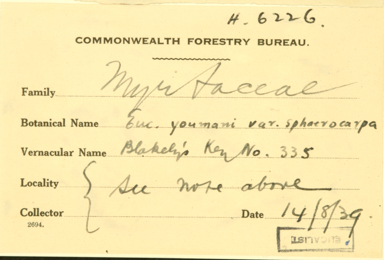 H. 6226.
COMMONWEALTH FORESTRY BUREAU.
Family Myrtaceae
Botanical Name Euc. youmani var. sphaerocarpa
Vernacular Name Blakely's Key No. 335
Locality See note above
Collector Date 14/8/39
2694.